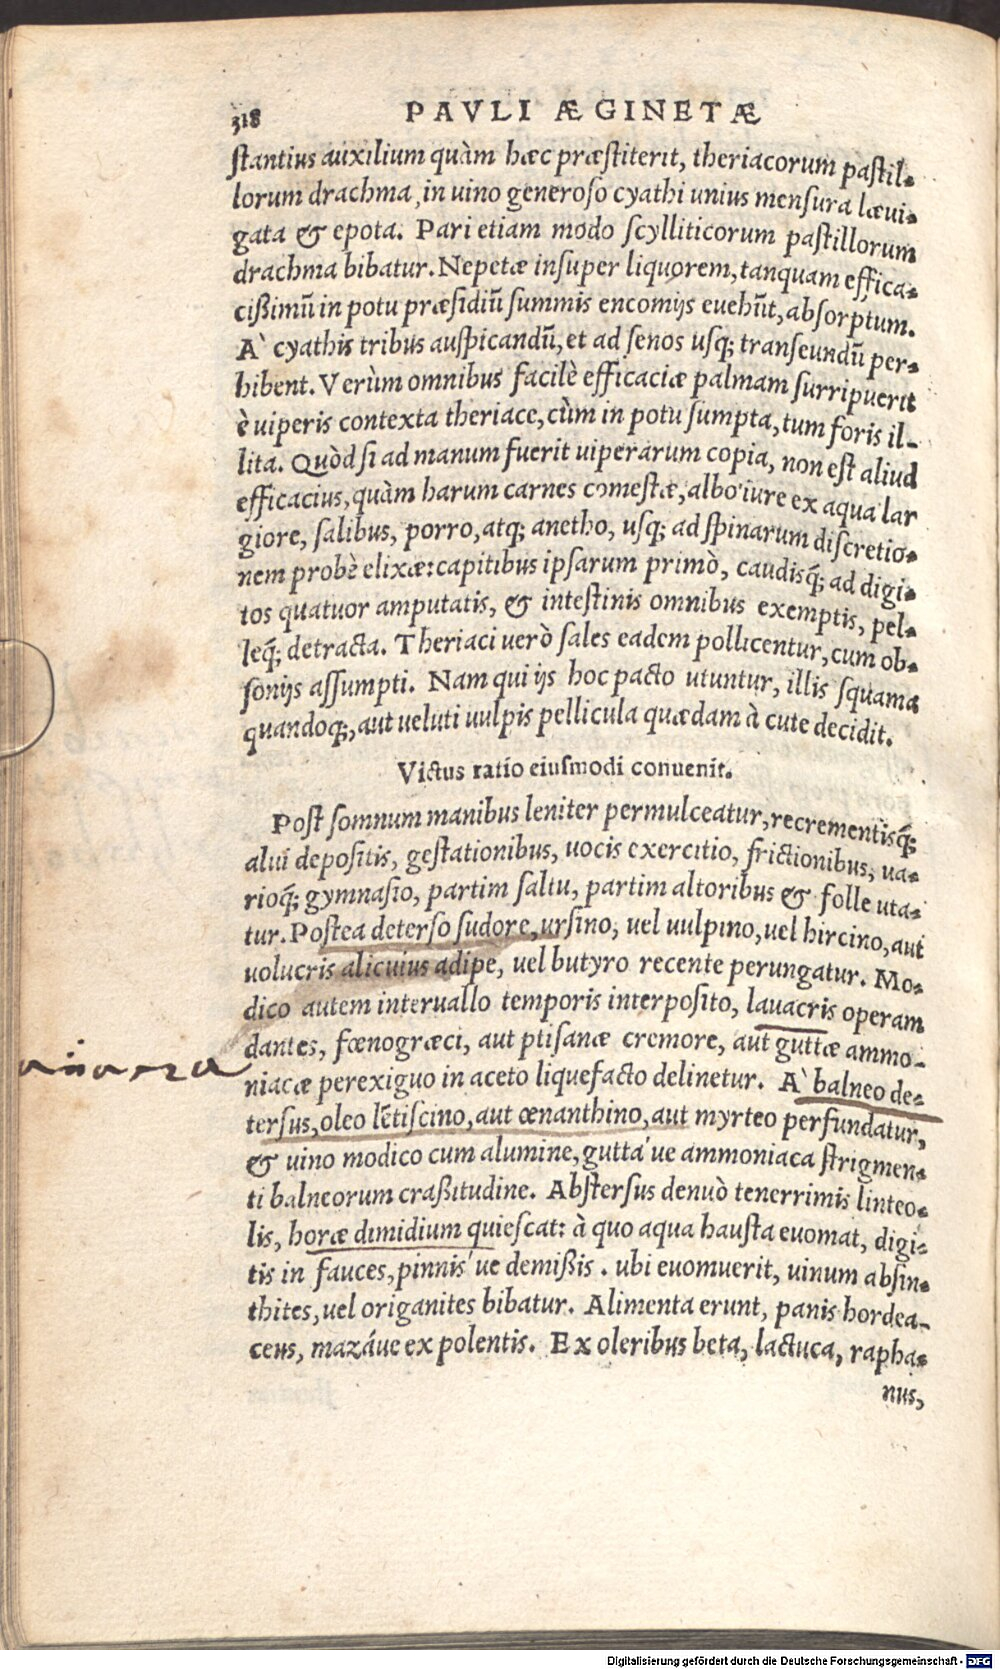 318 PAVLI ÆGINETÆ
ſtantius auxilium quàm hæc præſtiterit, theriacorum paſtil-
lorum drachma, in uino generoſo cyathi unius menſura læui-
gata & epota. Pari etiam modo ſcylliticorum paſtillorum
drachma bibatur. Nepetæ inſuper liquorem, tanquam effica-
cißimũ in potu præſidiũ ſummis encomijs euehũt, abſorptum.
A` cyathis tribus auſpicandũ, et ad ſenos uſq; tranſeundũ per-
hibent. Verùm omnibus facilè efficaciæ palmam ſurripuerit
è uiperis contexta theriace, cùm in potu ſumpta, tum foris il-
lita. Quòd ſi ad manum fuerit uiperarum copia, non eſt aliud
efficacius, quàm harum carnes comeſtæ, albo iure ex aqua lar
giore, ſalibus, porro, atq; anetho, uſq; ad ſpinarum diſcretio-
nem probè elixæ: capitibus ipſarum primò, caudisq́; ad digi-
tos quatuor amputatis, & inteſtinis omnibus exemptis, pel-
leq́; detracta. Theriaci uerò ſales eadem pollicentur, cum ob-
ſonijs aſſumpti. Nam qui ijs hoc pacto utuntur, illis ſquama
quandoq;, aut ueluti uulpis pellicula quædam à cute decidit.
Victus ratio eiuſmodi conuenit.
Poſt ſomnum manibus leniter permulceatur, recrementisq́;
alui depoſitis, geſtationibus, uocis exercitio, frictionibus, ua-
rioq́; gymnaſio, partim ſaltu, partim altoribus & folle uta-
tur. Poſtea deterſo ſudore, urſino, uel uulpino, uel hircino, aut
uolucris alicuius adipe, uel butyro recente perungatur. Mo-
dico autem interuallo temporis interpoſito, lauacris operam
dantes, fœnogræci, aut ptiſanæ cremore, aut guttæ ammo-
niacæ perexiguo in aceto liquefacto delinetur. A` balneo de-
terſus, oleo lẽtiſcino, aut œnanthino, aut myrteo perfundatur,
& uino modico cum alumine, gutta´ue ammoniaca ſtrigmen-
ti balneorum craßitudine. Abſterſus denuò tenerrimis linteo-
lis, horæ dimidium quieſcat: à quo aqua hauſta euomat, digi-
tis in fauces, pinnis´ue demißis. ubi euomuerit, uinum abſin-
thites, uel origanites bibatur. Alimenta erunt, panis hordea-
ceus, mazáue ex polentis. Ex oleribus beta, lactuca, rapha-
nus,
Digitalisierung gefördert durch die Deutsche Forschungsgemeinschaft - DFG